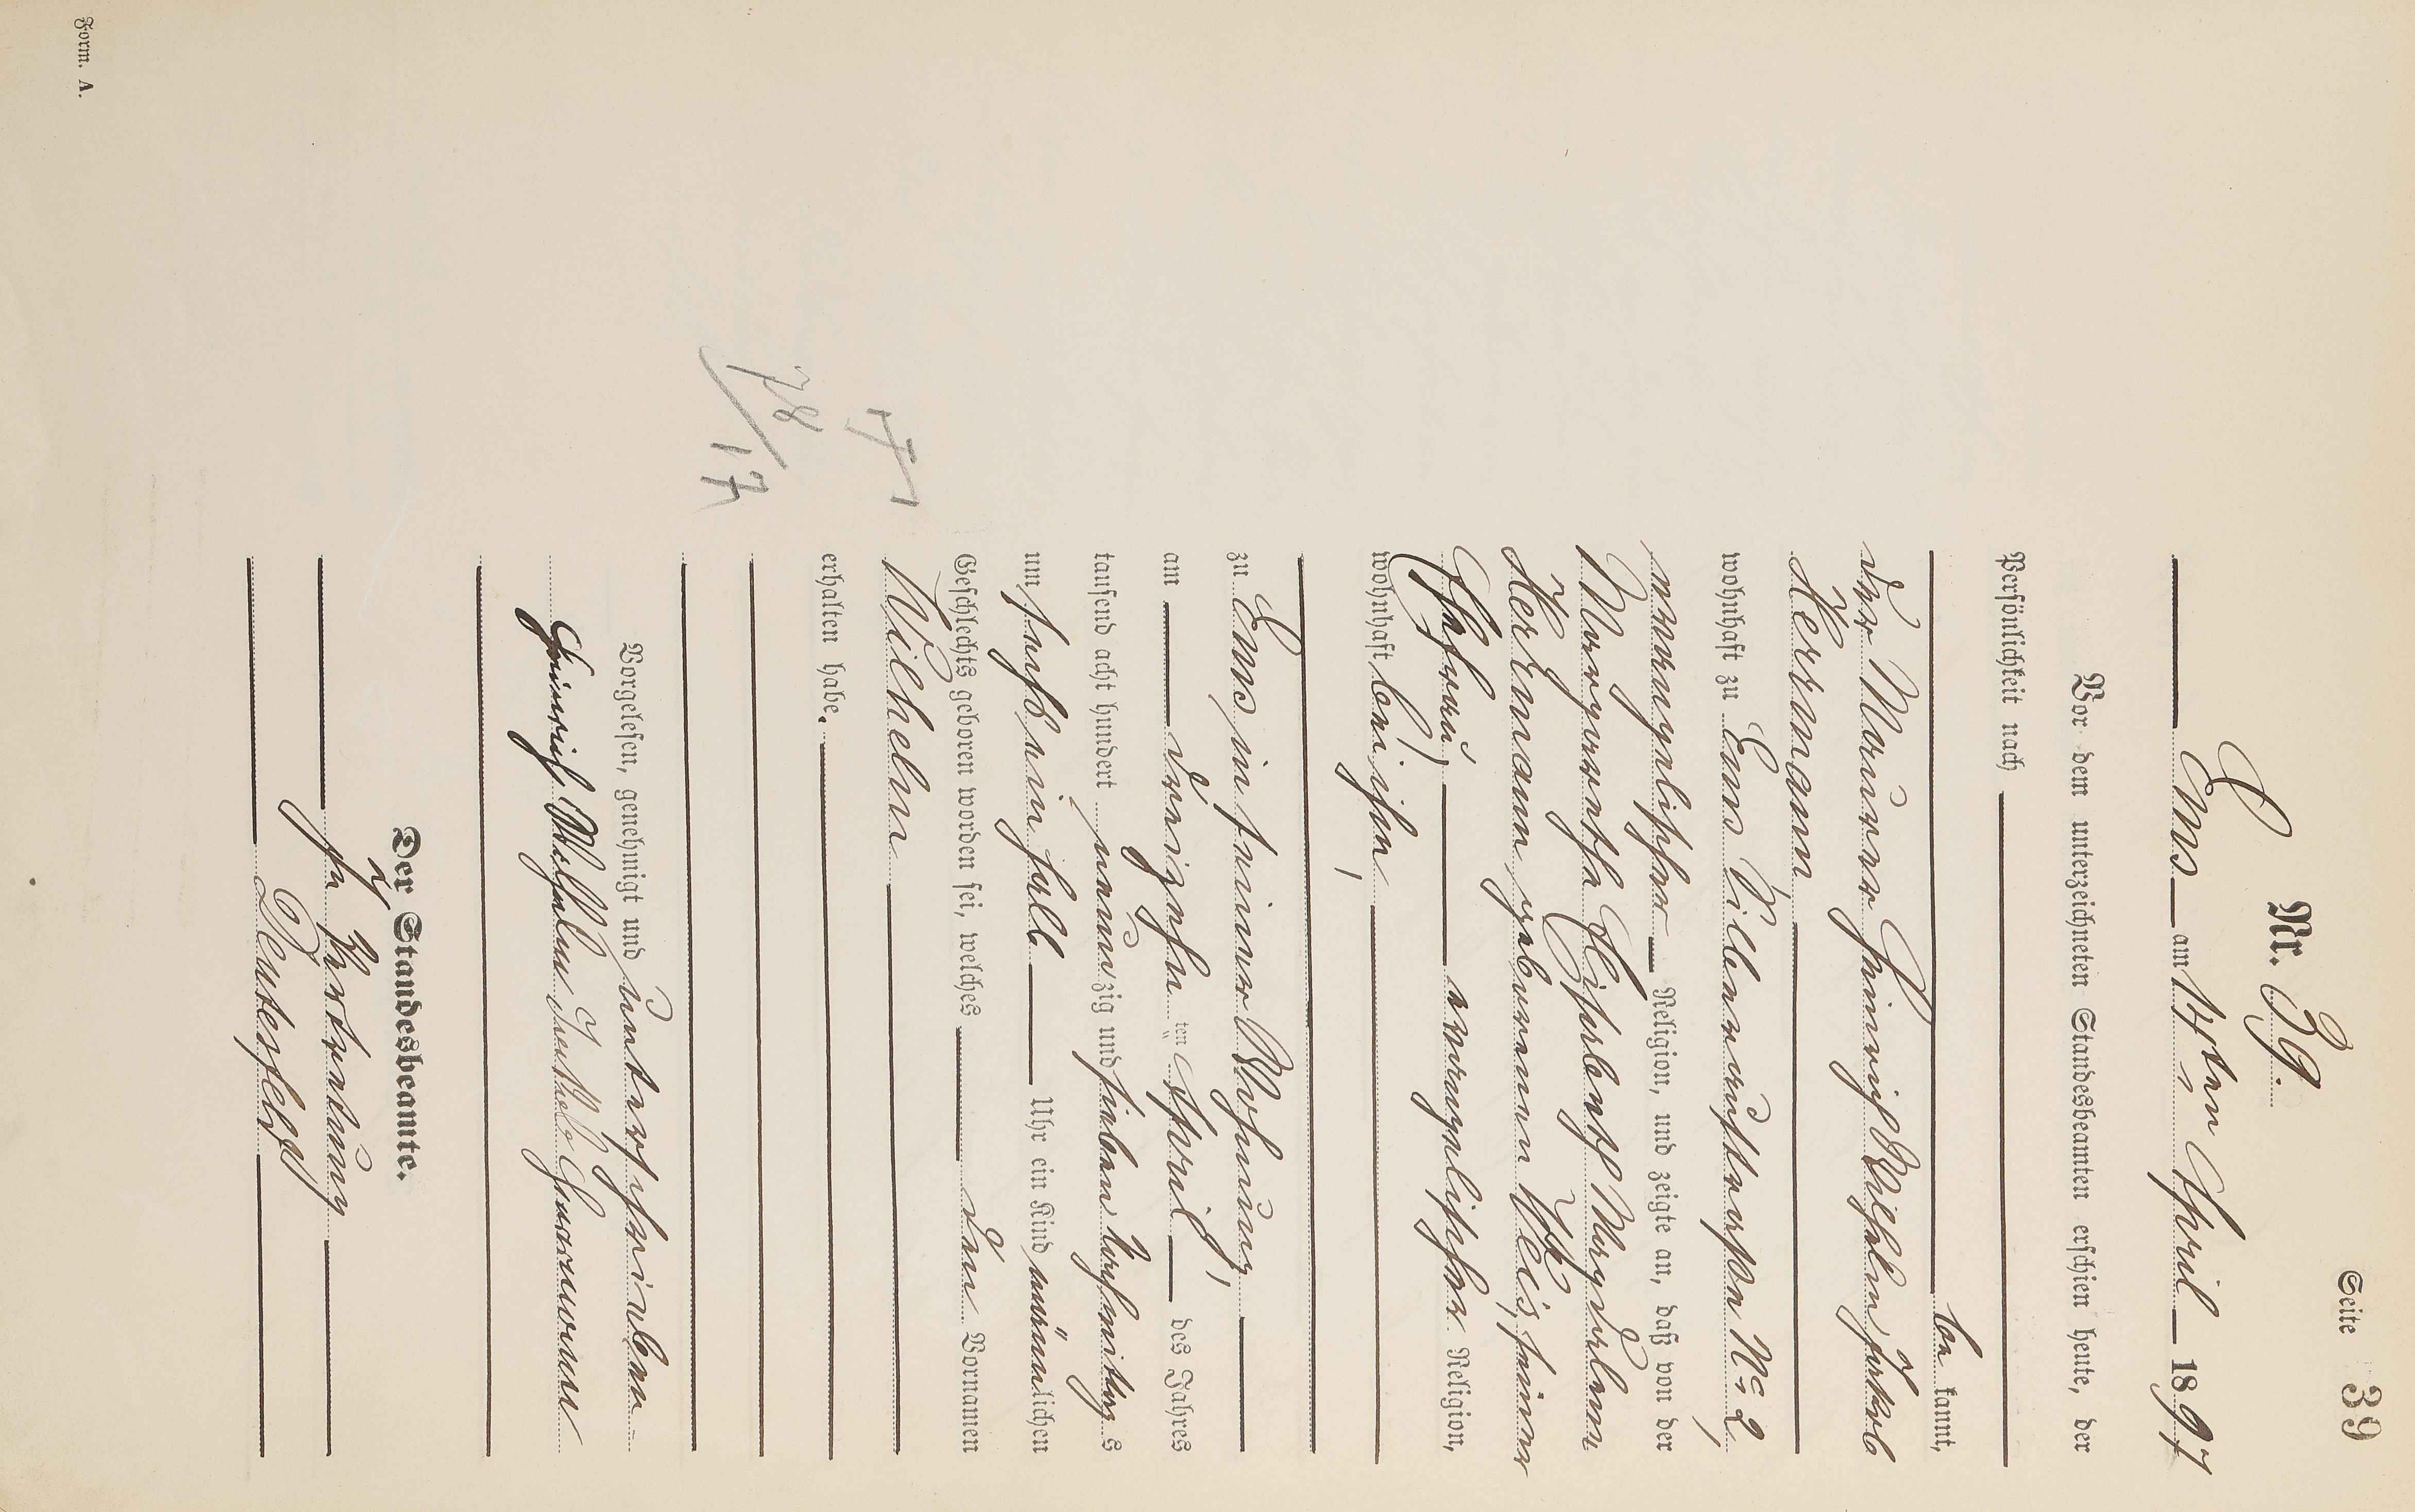 Seite 39
Nr. 39.
Ems am 17ten April 1897
Vor dem unterzeichneten Standesbeamten erschien heute, der
Persönlichkeit nach
be kannt,
der Maurer Heinrich Wilhelm Jakob
Herrmann
wohnhaft zu Ems Villenruftraßen № 2,
evangelischer Religion, und zeigte an, daß von der
Margaretha Elisabeth Magdalena
Herrmann geborenen Weis, seiner
Ehefrau, evangelischer Religion,
wohnhaft bei ihm,
zu Ems in seiner Wohnung
am dreizehnten April, des Jahres
tausend acht hundert neunzig und sieben Nachmittags
um sechs ein halb Uhr ein Kind männlichen
Geschlechts geboren worden sei, welches den Vornamen
Wilhelm
erhalten habe.
Vorgelesen, genehmigt und unterschrieben
Heinrich Wilhelm Jakob Herrmann
Der Standesbeamte.
In Vertretung
Form. A.